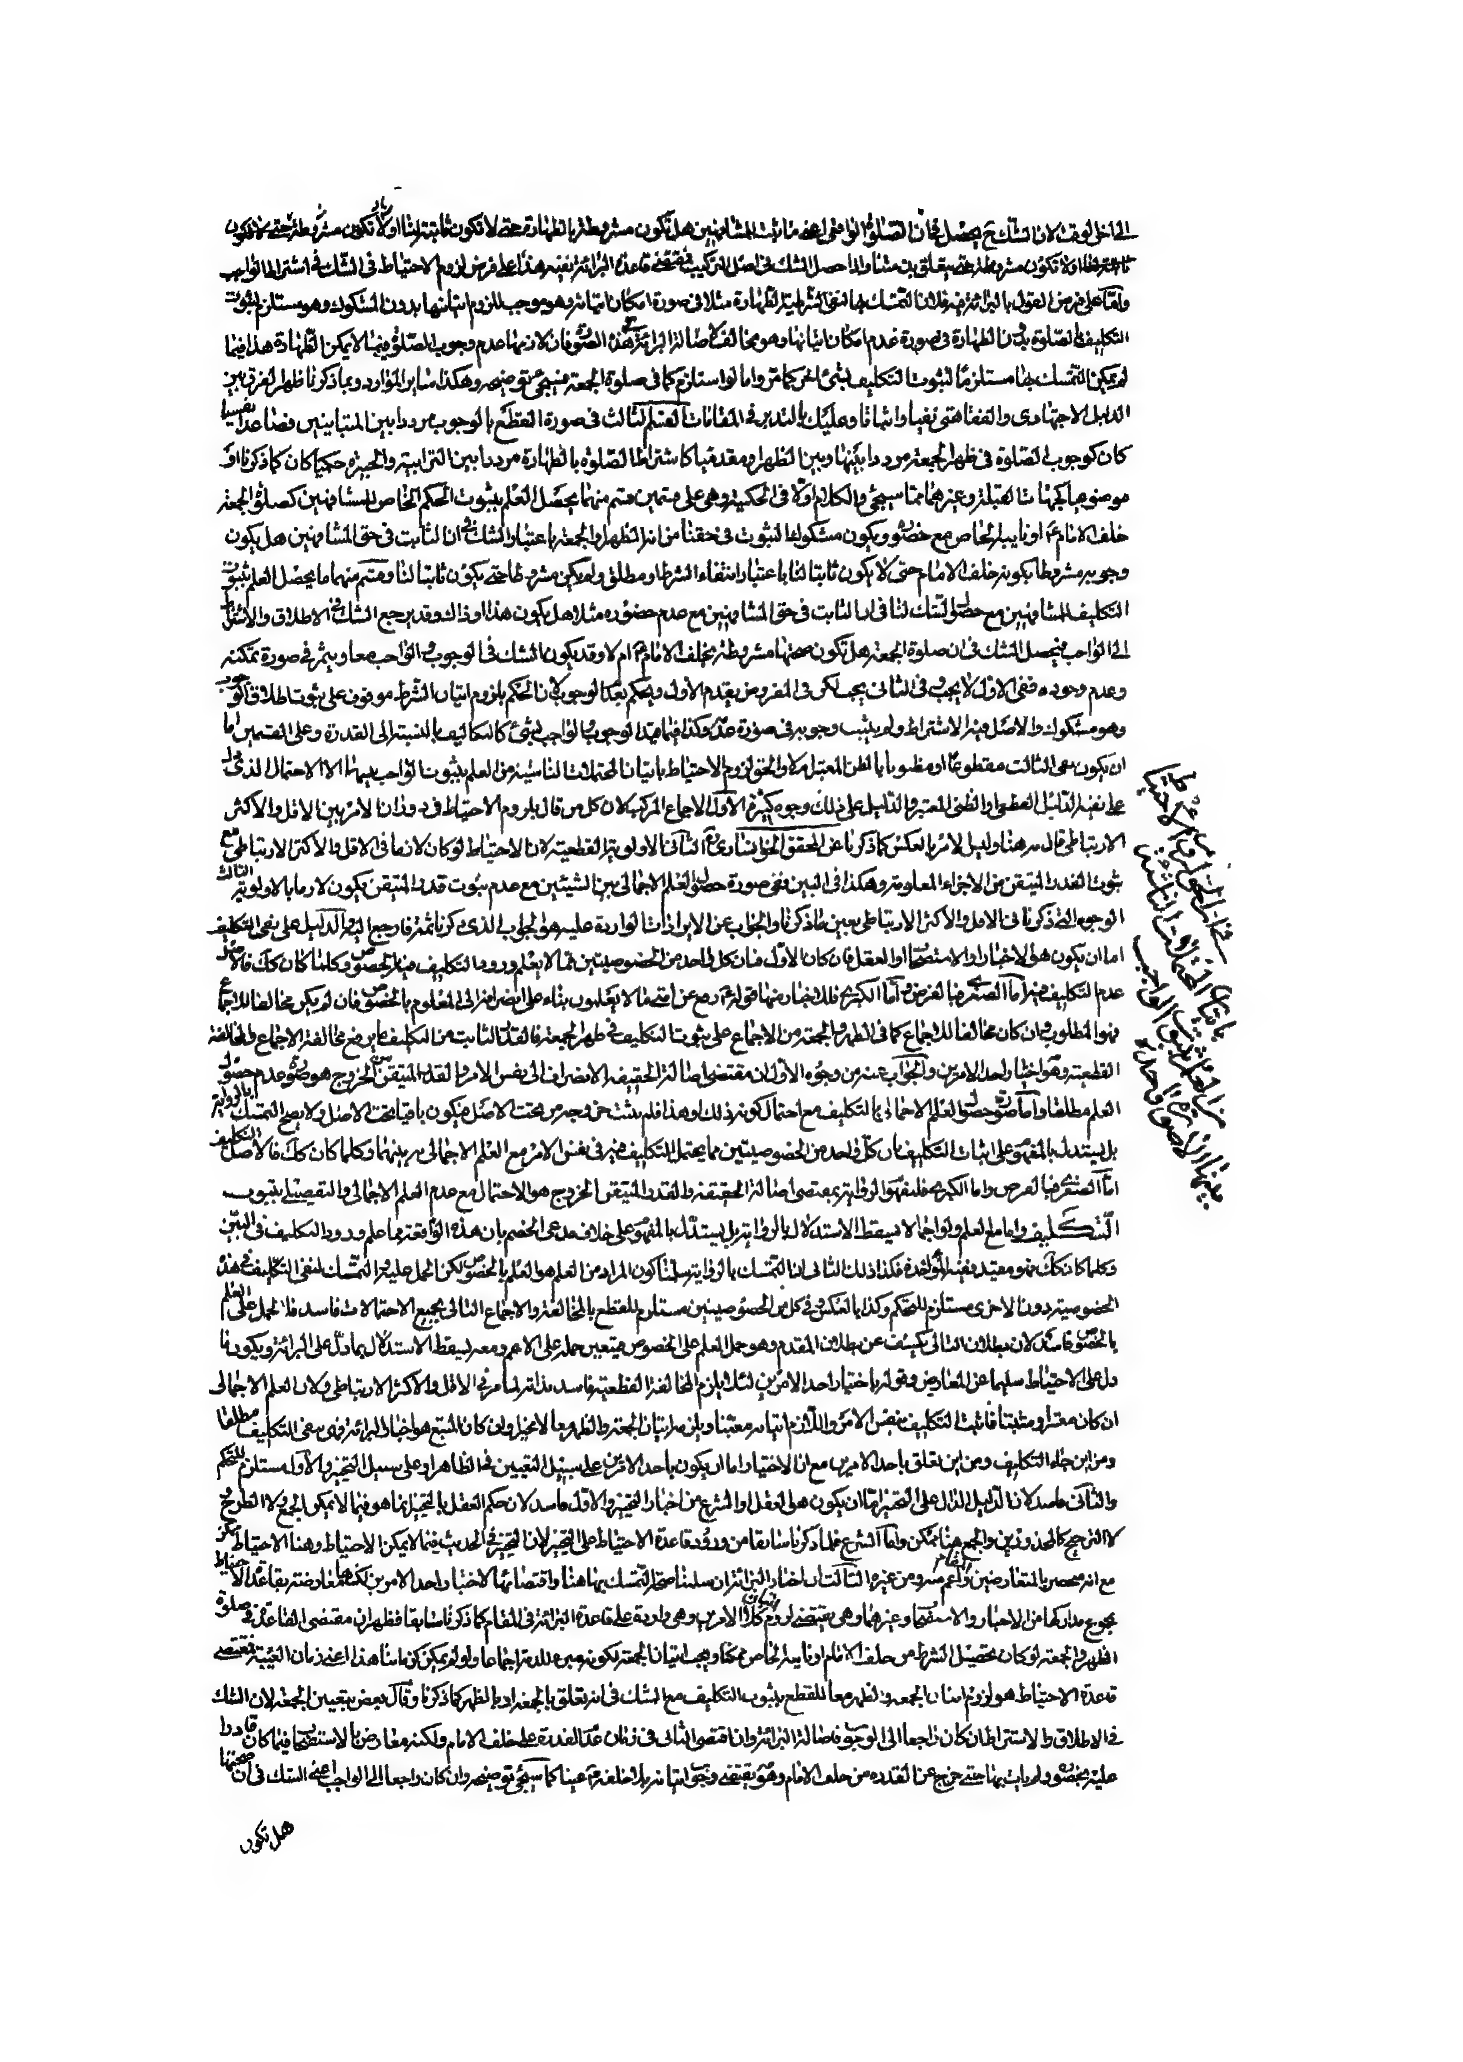 الى اخل الوقت لان الشك ح يحصل فى ان الصلوة الواقعى اعنى ما ثبت للمشافهين هل تكون مشروطة بالطهارة حتى لا تكون ثابتة لنا او لا تكون مشروطة حتى
او لا تكون مشروطة حتى يتعلق بن مثنا واذا حصل الشك فى اصل التركيب فمقتضى قاعدة البرائة نفيه هذا على فرض لزوم الاحتياط فى الشك فى اشتراط الواجب
واما على فرض القول بالبرائة فيه فلان التمسك بها لنفى الشرطية للطهارة مثلا فى صورة امكان اتيانه وهو موجب للزوم اتيانها بدون المشكوك وهو مستلزم لثبوت
التكليف فى الصلوة بدون الطهارة فى صورة عدم امكان اتيانها وهو مخالف لاصالة البرائة فى هذه الصورة فان لازمها عدم وجوب الصلوة فيما لا يمكن الطهارة هذا فيما
لم يمكن التمسك بها مستلزما لثبوت التكليف بشئ اخر كما مر واما لو استلزم كما فى صلوة الجمعة فسيجئ توضيحه وهكذا ساير الموارد وبما ذكرنا ظهر الفرق بين
الدليل الاجتهادى والفقاهتى نفيا واثباتا وعليك بالتدبر فى المقامات القسم الثالث فى صورة القطع بالوجوب مرددا بين المتباينين فصاعدا نفسيا
كان كوجوب الصلوة فى ظهر الجمعة مرددا بينها وبين الظهر او مقدميا كاشتراط الصلوة بالطهارة مرددا بين الترابية والجبيرة حكميا كان كما ذكرنا او
موضوعيا كجهات القبلة وغيرهما مما سيجئ والكلام اولا فى الحكمية وهى على قسمين قسم منهما يحصل العلم بثبوت الحكم الخاص للمشافهين كصلوة الجمعة
خلف الامام ع او نايبه الخاص مع حضوره ويكون مشكوك الثبوت فى حقنا من امر الظهر او الجمعة باعتبار الشك فى ان الثابت فى حق المشافهين هل يكون
وجوبه مشروطا بكونه خلف الامام حتى لا يكون ثابتا لنا باعتبار انتفاء الشرط او مطلق ولم يكن مشروطا حتى يكون ثابتا لنا وقسم منهما ما يحصل العلم بثبوت
التكليف للمشافهين مع حصول الشك لنا فى ان الثابت فى حق المشافهين مع عدم حضوره مثلا هل يكون هذا او ذاك وقد يرجع الشك فى الاطلاق والاشتراط
الى الواجب فيحصل الشك فى ان صلوة الجمعة هل تكون صحتها مشروطة بخلف الامام ع ام لا وقد يكون الشك فى الوجوب والواجب معا ويثمر فى صورة تمكنه
وعدم وجوده ففى الاول لا يجب وفى الثانى يجب لكن فى المفروض يقدم الاول ويحكم بعدم الوجوب لان الحكم بلزوم اتيان الشرط موقوف على ثبوت اطلاق الوجوب
وهو مشكوك والاصل فيه الاشتراط ولم يثبت وجوبه فى صورة عدمه وكذا فيما قيد الوجوب والواجب بشئ كالتكاليف بالنسبة الى القدرة وعلى القسمين اما
ان يكون نفى الثالث مقطوعا او مظنونا بالظن المعتبر ام لا والحق لزوم الاحتياط باتيان المحتملات الناشئة من العلم بثبوت الواجب بينها الا الاحتمال الذى دل
على نفيه الدليل القطعى او الظنى المعتبر والدليل على ذلك وجوه كثيرة الاول الاجماع المركب لان كل من قال بلزوم الاحتياط فى دوران الامر بين الاقل والاكثر
الارتباطى قال به هنا وليس الامر بالعكس كما ذكرنا عن المحقق الخوانسارى ره الثانى الاولوية القطعية لان الاحتياط لو كان لازما فى الاقل والاكثر الارتباطى مع
ثبوت القدر المتيقن من الاجزاء المعلومة وهكذا فى البين ففى صورة حصول العلم الاجمالى بين الشيئين مع عدم ثبوت قدر المتيقن يكون لازما بالاولوية الثالث
الوجوه التى ذكرنا فى الاقل والاكثر الارتباطى بعين ما ذكرنا والجواب عن الايرادات الواردة عليه هو الجواب الذى ذكرنا ثمة فارجع اليه الدليل على نفى التكليف
اما ان يكون هو الاخبار او الاستصحاب او العقل فان كان الاول فبان كل واحد من الخصوصيتين مما لا يعلم ورود التكليف فيه بالخصوص وكلما كان كك فالاصل
عدم التكليف فيه اما الصغرى فبالفرض واما الكبرى فللاخبار منها قوله ع رفع عن امتى ما لا يعلمون بناء على انصرافه الى المعلوم بالخصوص فان لم يكن مخالفا للاجماع
فهو المطلوب وان كان مخالفا للاجماع كما فى الظهر والجمعة من الاجماع على ثبوت التكليف فى ظهر الجمعة فالقدر الثابت من التكليف ما يرفع مخالفة الاجماع والمخالفة
القطعية وهو اختيار احد الامرين والجواب عنه من وجوه الاول ان مقتضى اصالة الحقيقة الانصراف الى نفس الامر والقدر المتيقن من الخروج هو صورة عدم حصول
العلم مطلقا واما صورة حصول العلم الاجمالى بالتكليف مع احتمال كونه ذلك وهذا فلم يثبت خروجه من تحت الاصل فيكون باقيا تحت الاصل ولا يصح التمسك بالرواية
بل يستدل بالمفهوم على اثبات التكليف بان كل واحد من الخصوصيتين مما يحتمل التكليف فيه فى نفس الامر مع العلم الاجمالى به بينهما وكلما كان كك فالاصل التكليف
اما الصغرى فبالفرض واما الكبرى فلمفهوم الرواية بمقتضى اصالة الحقيقة والقدر المتيقن الخروج هو الاحتمال مع عدم العلم الاجمالى والتفصيلى بثبوت
التكليف واما مع العلم ولو اجمالا فيسقط الاستدلال بالرواية بل يستدل بالمفهوم على خلاف مدعى الخصم بان هذه الواقعة مما علم ورود التكليف فى البين
وكلما كان كك فهو مقيد نفيه المؤاخذة فكذا ذلك الثانى ان التمسك بالرواية سلمنا كون المراد من العلم هو العلم بالخصوص لكن الحمل عليه والتمسك لنفى التكليف فى هذه
الخصوصية دون الاخرى مستلزم للتحكم وكذا بالعكس وفى كل من الخصوصيتين مستلزم للقطع بالمخالفة والاجماع التالى بجميع الاحتمالات فاسد فالحمل على العلم
بالخصوص فاسد لان بطلان التالى يكشف عن بطلان المقدم وهو حمل العلم على الخصوص فيتعين حمله على الاعم ومعه يسقط الاستدلال بما دل على البرائة ويكون ما
دل على الاحتياط سليما عن المعارض وقوله باختيار احد الامرين لئلا يلزم المخالفة القطعية فاسد بذاته لما مر فى الاقل والاكثر الارتباطى ولان العلم الاجمالى
ان كان معتبرا ومثبتا فاثبت التكليف بنفس الامر واللازم اتيانه معينا ويلزمه اتيان الجمعة والظهر معا لا مخيرا وان كان المتبع هو اخبار البرائة فهى منفى التكليف مطلقا
ومن اين جاء التكليف ومن اين تعلق باحد الامرين مع ان الاختيار اما ان يكون باحد الامرين على سبيل التعيين فى الظاهر او على سبيل التخيير والاول مستلزم للتحكم
والثانى فاسد لان الدليل الدال على التخيير اما ان يكون هو العقل او الشرع من اخبار التخيير والاول فاسد لان حكم العقل بالتخيير انما هو فيما لا يمكن الجمع ولا الطرح
لا الترجيح كالمحذورين والجمع هنا ممكن واما الشرع فلما ذكرنا سابقا من ورود قاعدة الاحتياط على التخيير لان التخيير فى الحديث فيما لا يمكن الاحتياط وهنا الاحتياط ممكن
مع انه مختص بالمتعارضين والمقام اعم منه ومن غيره الثالث ان اخبار البرائة ان سلمنا صحة التمسك بها هنا واقتضائها لاختيار احد الامرين لكنها معارضة بقاعدة الاحتياط
بجموع مداركها من الاخبار والاستصحاب وغيرهما وهى يقتضى لزوم اتيان كلا الامرين وهى واردة على قاعدة البرائة فى المقام كما ذكرنا سابقا فظهر ان مقتضى القاعدة فى صلوة
الظهر والجمعة لو كان تحصيل الشرط من خلف الامام او نايبه الخاص ممكنا ويجب اتيان الجمعة لكونه مبرء للذمة اجماعا ولو لم يمكن كزماننا هذا اعنى زمان الغيبة فمقتضى
قاعدة الاحتياط هو لزوم اتيان الجمعة والظهر معا للقطع بثبوت التكليف مع الشك فى انه تعلق بالجمعة او بالظهر كما ذكرنا وقال بعض بتعيين الجمعة لان الشك
فى الاطلاق والاشتراط ان كان راجعا الى الوجوب فاصالة البرائة وان اقتضى الثانى فى زمان عدم القدرة على خلف الامام ولكنه معارض بالاستصحاب فيما كان قادرا
عليه بحضوره ولم يات بها حتى خرج عن القدرة من خلف الامام وهو يقتضى وجوب اتيانه بلا خلفه ع عينا كما سيجئ توضيحه وان كان راجعا الى الواجب اعنى الشك فى ان صحتها
هل تكون